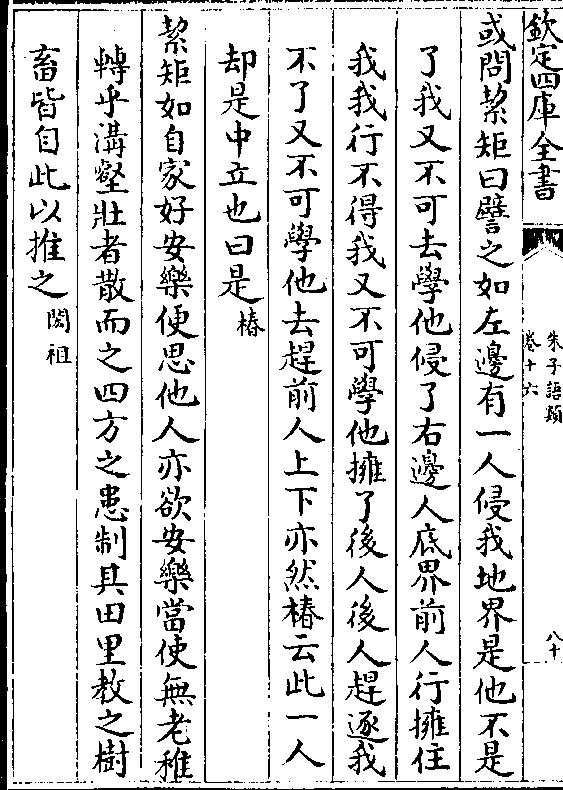 欽定四庫全書
朱子語類
卷十六
八十
或問絜矩曰譬之如左邊有一人侵我地界是他不是
了我又不可去學他侵了右邊人底界前人行擁住
我我行不得我又不可學他擁了後人後人趕逐我
不了又不可學他去趕前人上下亦然椿云此一人
却是中立也曰是椿
絜矩如自家好安樂便思他人亦欲安樂當使無老稚
轉乎溝壑壯者散而之四方之患制其田里教之樹
畜皆自此以推之閎祖